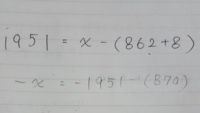 1951 = x - (862+8)
-x = -1951 - (870)